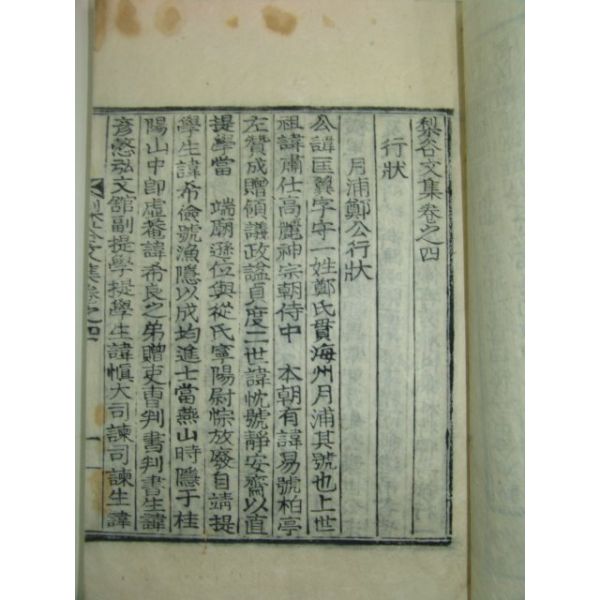 梨谷文集卷之四
行狀
月浦鄭公行狀
公諱匡翼字守一姓鄭氏貫海州月浦其號也上世
祖諱肅仕高麗神宗朝侍中 本朝有諱易號柏亭
左贊成贈領議政諡貞度二世諱忱號靜安齋以直
提學當 端廟遜位與從氏寧陽尉悰放廢自靖提
學生諱希儉號漁隱以成均進士當燕山時隱于桂
陽山中卽虛菴諱希良之弟贈吏曹判書判書生諱
彦慤弘文舘副提學提學生諱愼大司諫司諫生諱
文集卷之四